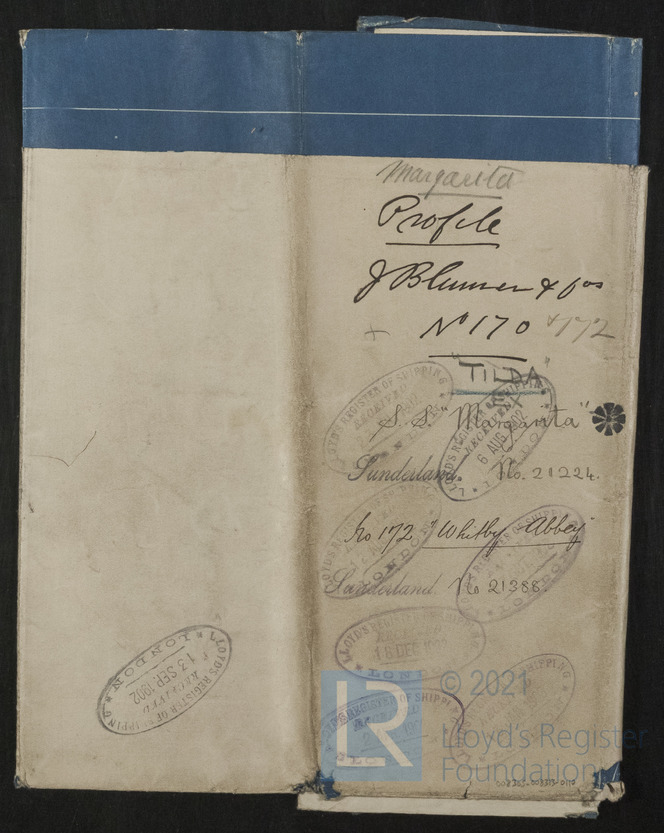 Margarita
Profile
J Blumer & Co
No 170 & 172
"TILDA"
S.S. "Margarita"
Sunderland. No. 21224.
No 172 "Whitby Abbey"
Sunderland No 21388.
LLOYD'S REGISTER OF SHIPPING
RECEIVED
LONDON
LLOYD'S REGISTER OF SHIPPING
RECEIVED
6 AUG 1902
LONDON
LONDON
LLOYD'S REGISTER OF SHIPPING
16 DEC
LONDON
LLOYD'S REGISTER OF SHIPPING
RECEIVED
13 SEP 1902
LONDON
LLOYD'S REGISTER OF SHIPPING
LR
© 2021
Lloyd's Register
Foundation